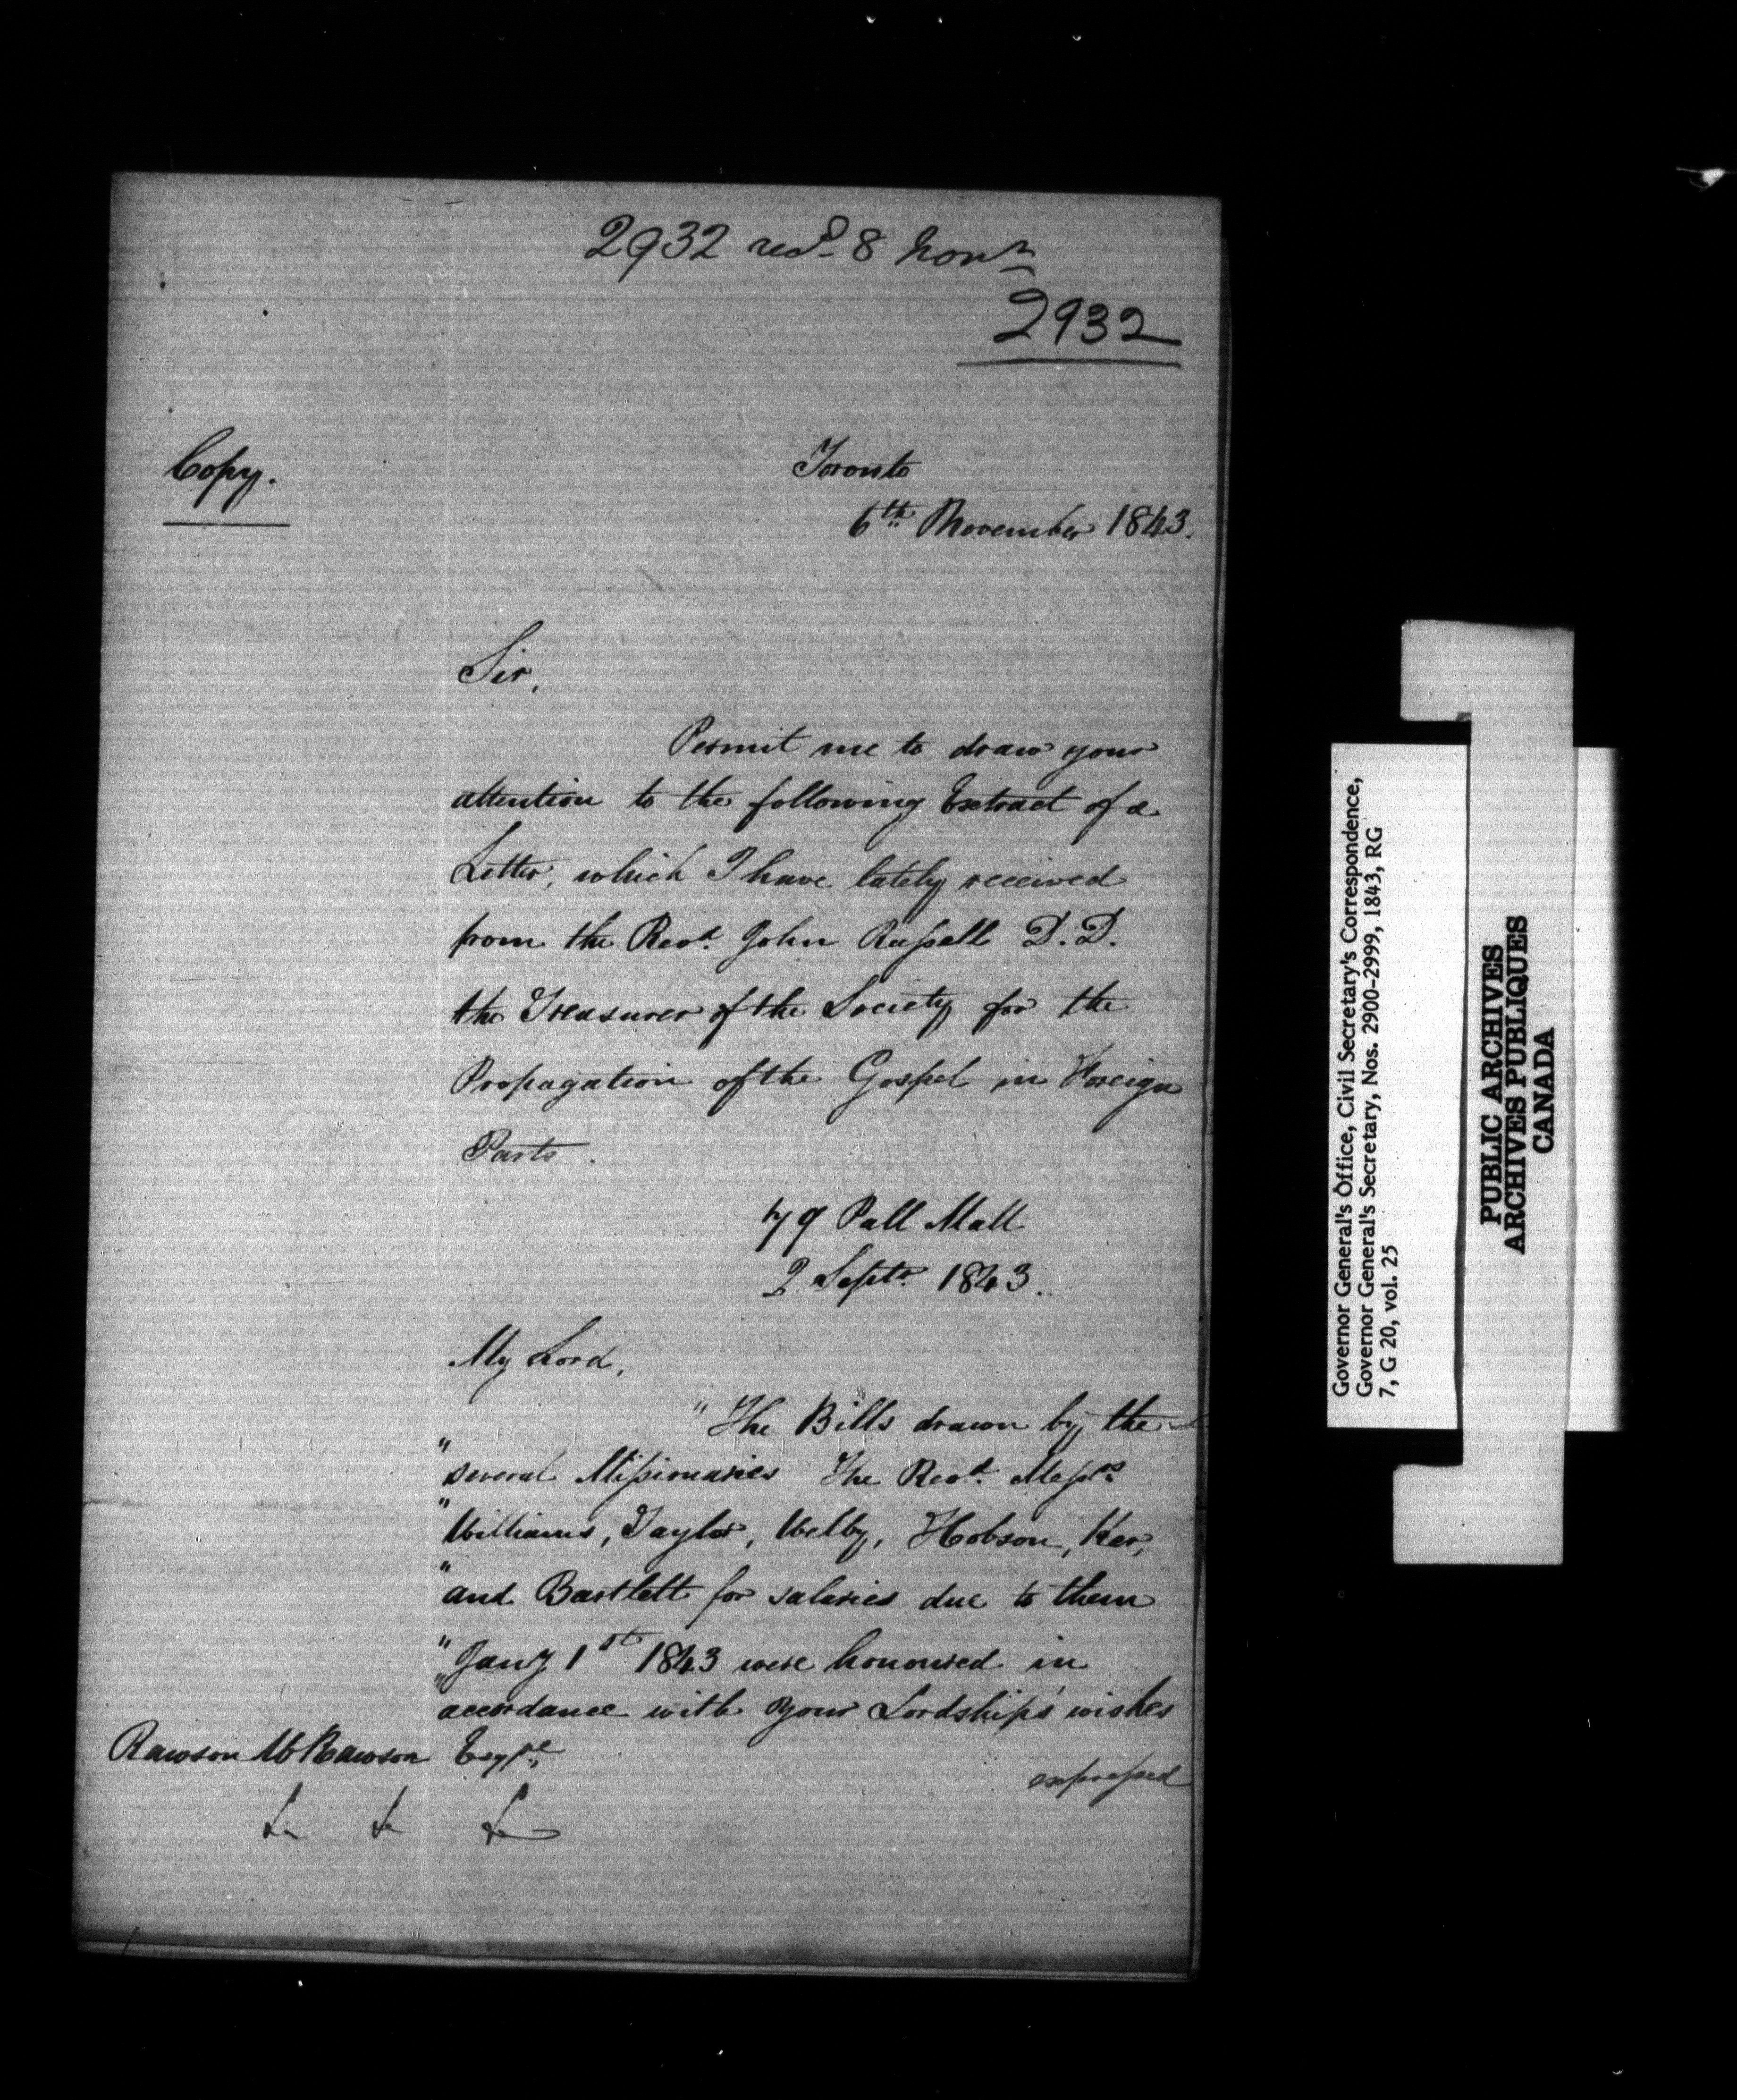 2932 recd 8 Novr
2932
Copy.
Toronto
6th November 1843.
Sir,
Permit me to draw your
attention to the following Extract of a
Letter, which I have lately received
from the Revd. John Russell D.D.
the Treasurer of the Society for the
Propagation of the Gospel in Foreign
Parts.
79 Pall Mall
2 Septr. 1843.
My Lord,
"The Bills drawn by the
"several Missionaries The Revd. Messrs
"Williams, Taylor, Welby, Hobson, Ker,
"and Bartlett for salaries due to them
"Jany 1st 1843 were honoured in
"accordance with your Lordship's wishes
expressed
Rawson W Rawson Esqre
&c &c &c
Governor General's Office, Civil Secretary's Correspondence,
Governor General's Secretary, Nos. 2900-2999, 1843, RG
7, G 20, vol. 25
PUBLIC ARCHIVES
ARCHIVES PUBLIQUES
CANADA